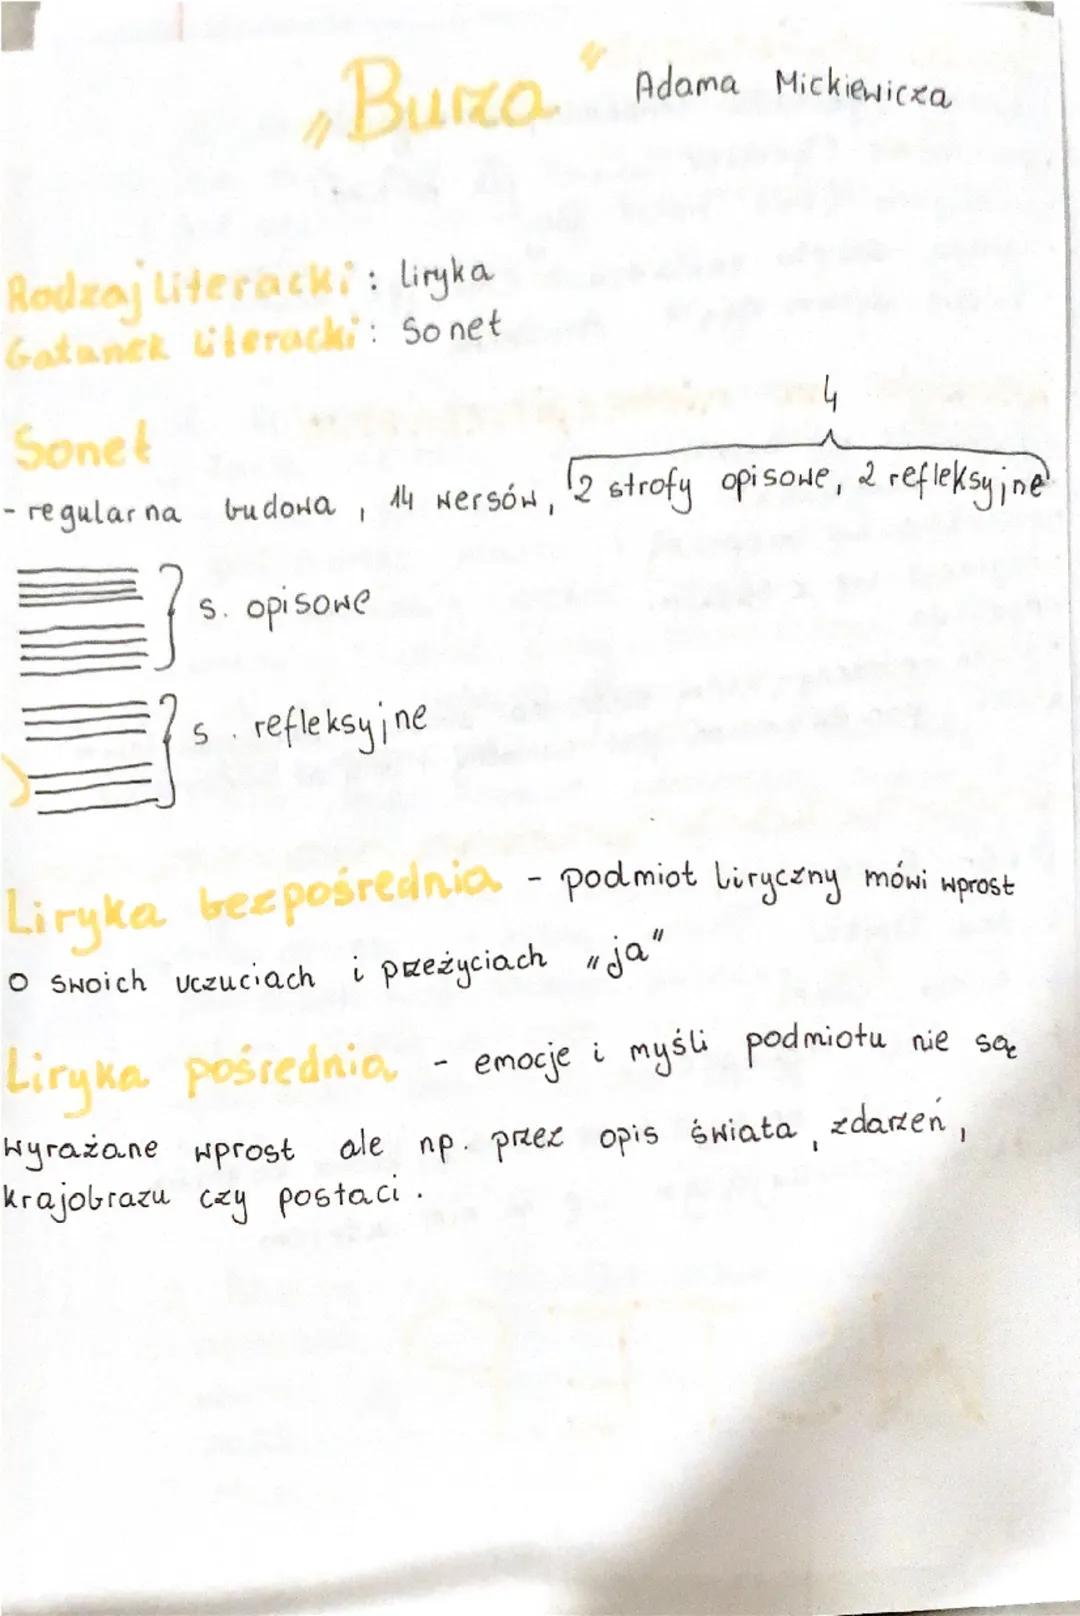 „Burza" Adama Mickiewicza
Rodzaj literacki: liryka
Gatunek literacki: Sonet
4
Sonet
- regularna budowa, 14 wersów, 2 strofy opisowe, 2 refleksyjne
s. opisowe
s. refleksyjne
Liryka bezpośrednia - podmiot liryczny mówi wprost
o swoich uczuciach i przeżyciach „ja"
Liryka pośrednia - emocje i myśli podmiotu nie są
wyrażane wprost ale np. przez opis świata, zdarzeń,
krajobrazu czy postaci.